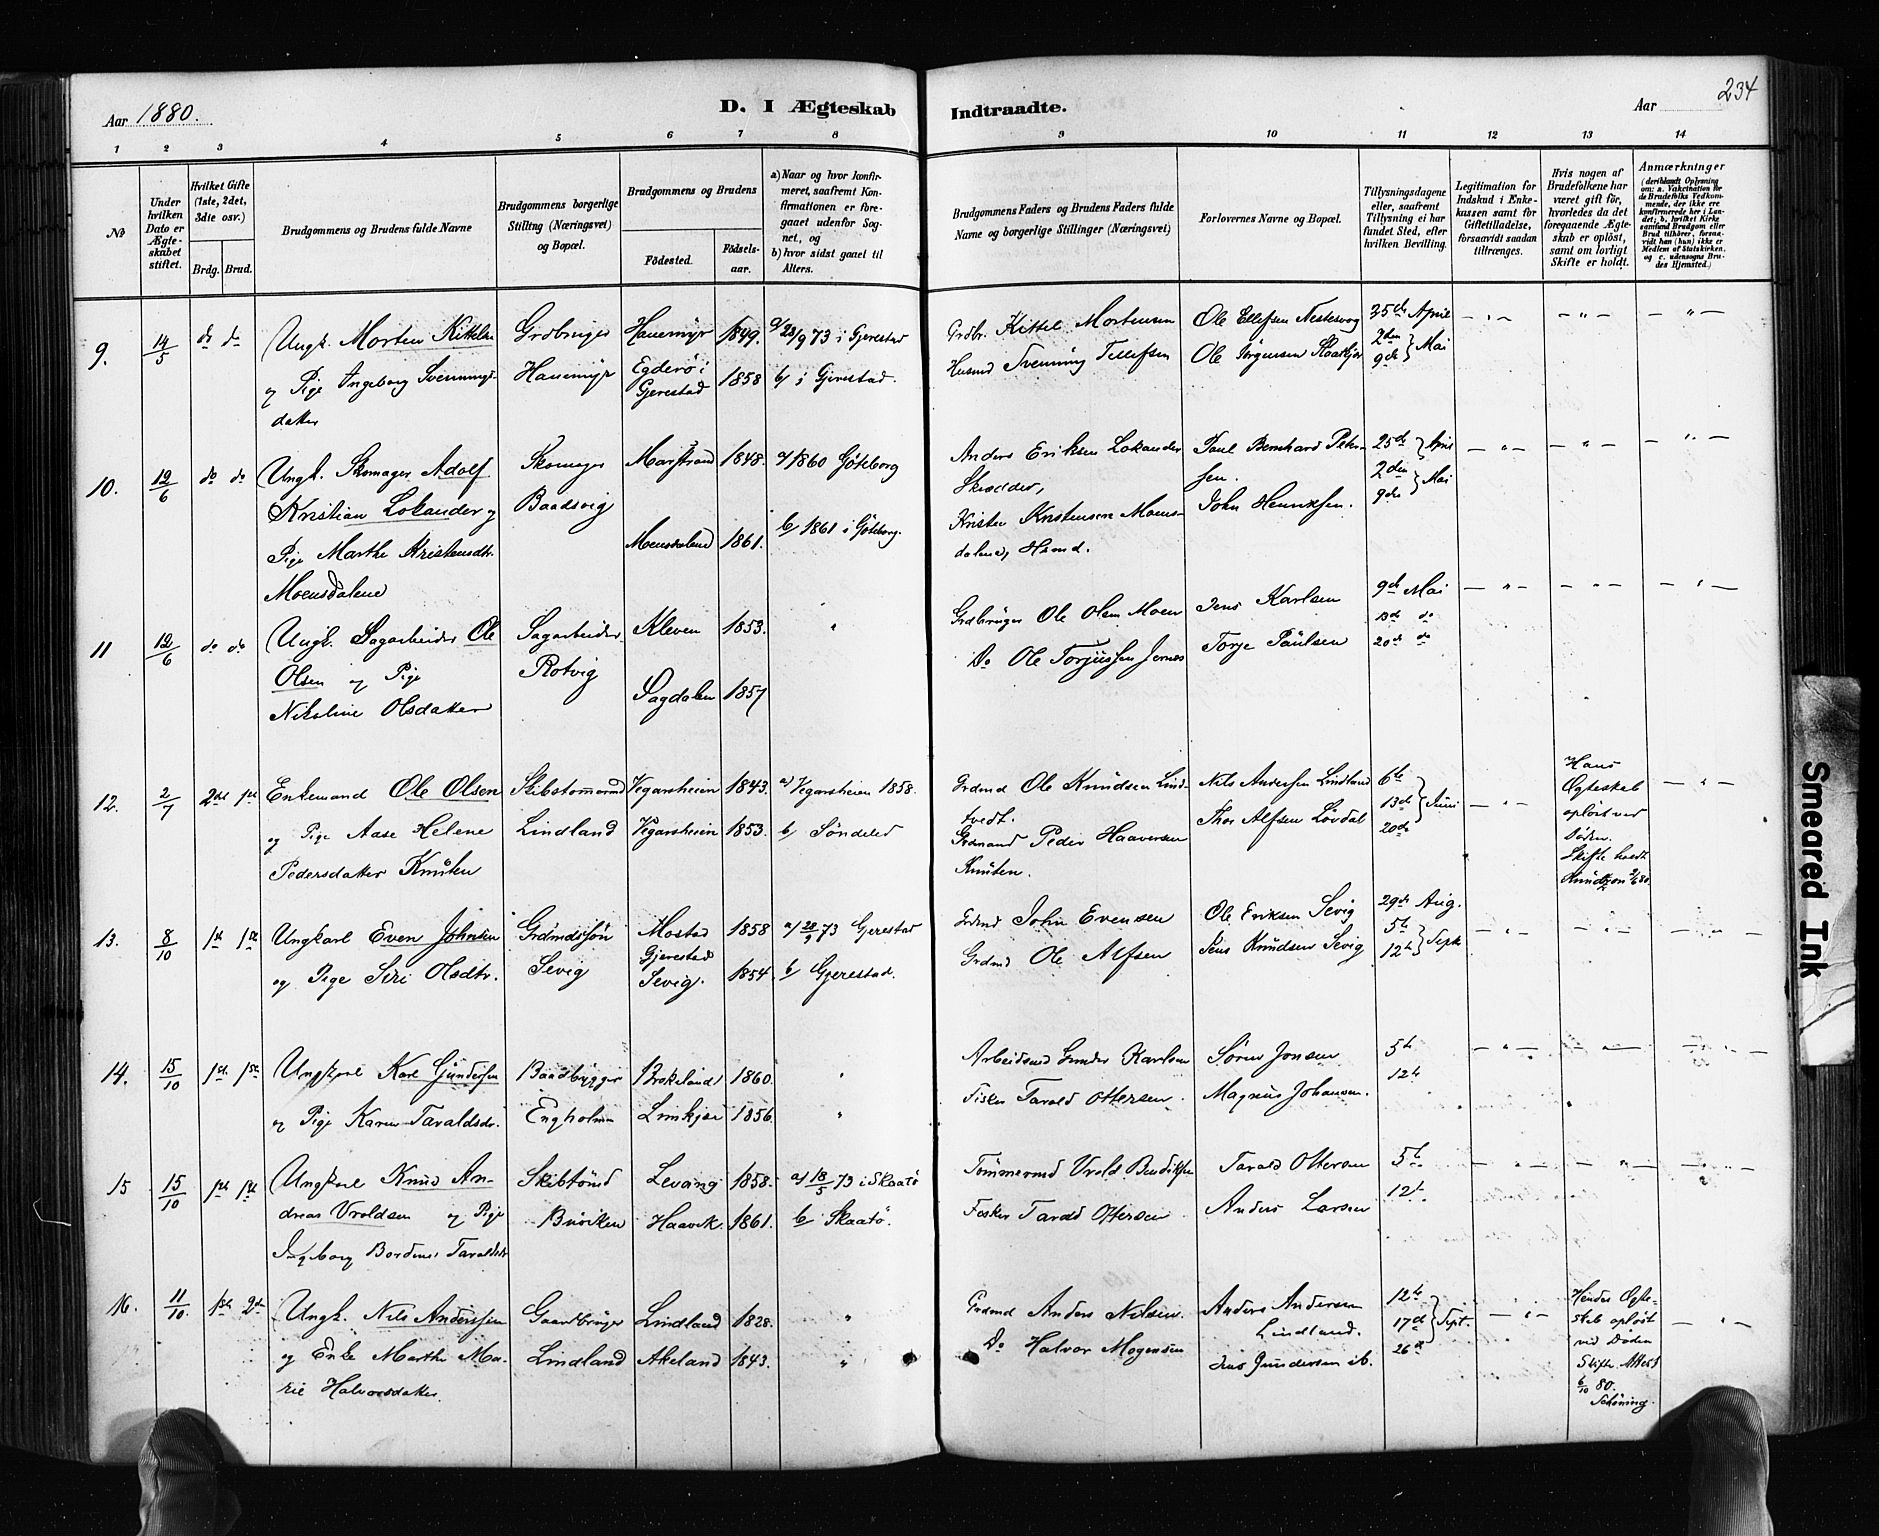 Aar 1880.
D. I Ægteskab
Indtraadte.
Aar
234
1 2 3 4 5 6 7 8 9 10 11 12 13 14
No
Under hvilken Dato er Ægteskabet stiftet.
Hvilket Gifte (1ste, 2det, 3die osv.)
Brdg. Brud.
Brudgommens og Brudens fulde Navne
Brudgommens borgerlige Stilling (Næringsvei) og Bopæl.
Brudgommens og Brudens
Födested.
Födsels-aar.
a) Naar og hvor konfirmeret, saafremt Konfirmationen er foregaaet udenfor Sognet, og
b) hvor sidst gaaet til Alters.
Brudgommens Faders og Brudens Faders fulde Navne og borgerlige Stillinger (Næringsvei)
Forlovernes Navne og Bopæl.
Tillysningsdagene eller, saafremt Tillysning ei har fundet Sted, efter hvilken Bevilling.
Legitimation for Indskud i Enkekassen samt for Giftetilladelse, forsaavidt saadan tiltrænges.
Hvis nogen af Brudefolkene har været gift för, hvorledes da det foregaaende Ægteskab er oplöst, samt om lovligt Skifte er holdt.
Anmærkninger
(deriblandt Oplysning om: a. Vakcination for de Brudefolks Vedkommende, der ikke ere konfirmerede her i Landet; b. hvilket Kirkesamfund Brudgom eller Brud tilhörer, forsaavidt han (hun) ikke er Medlem af Statskirken, og c. udensogns Brudes Hjemsted.)
9. 14/5 do do Ungk. Morten Kittels. Grdbruger Hauemyr 1849. a/ 28/9 73 i Gjerestad Grdbr. Kittel Mortensen Ole Ellefsen Nesteevog 25de April
og Pige Ingeborg Svennings- Hauemyr Egderö i Gjerestad 1858 b/ i Gjerestad. Husmd Svenning Tellefsen Ole Jörgensen 2den 9de Mai
datter
10. 12/6 do do Ungk. Skomager Adolf Skomager Marstrand 1848. a/ 1860 Göteborg Anders Eriksen Lokander Paul Bernhard Peter- 25de April
Kristian Lokander og Baadsvig Skrædder, sen. 2den 9de Mai
Pige Marthe Kristensdtr. Moensdalene 1861. b/ 1861 i Göteborg. Kristen Kristensen Moens- John Henriksen.
Moensdalene dalene, Hsmd.
11 12/6 do do Ungk. Sagarbeider Ole Sagarbeider Kleven 1853. Grdbruger Ole Olsen Moen Jens Karlsen 9de Mai
Olsen og Pige Rotvig Do Ole Torjussen Jernes Torje Paulsen do
Nikoline Olsdatter Sagdalen 1857 20de do
12. 2/7 2det 1ste Enkemand Ole Olsen Skibstömmermd Vegarsheien 1843. a) Vegarsheien 1858. Grdmd Ole Knudsen Lind- Nils Andersen Lindland 6te Hans Ægteskab
og Pige Aase Helene Lindland Vegarsheien 1853. b/ Söndeled tvedt. Thor Alfsen Lövdal 13de 20de Juni oplöst ved
Pedersdatter Knuten Grdmand Peder Haaversen Döden.
Knuten. Skifte holdt
13. 8/10 1ste 1ste Ungkarl Even Johnsen Grdmdssön Mostad Gjerestad 1858 a/ 28/9 73 Gjerestad Grdmd John Evensen Ole Eriksen Sevig 29de Aug.
og Pige Siri Olsdtr. Sevig Sevig. 1854 b/ Gjerestad. Grdmd Ole Alfsen Jens Knudsen Sevig 5te 12te Septr
14. 15/10 1ste 1ste Ungkarl Karl Gundersen Baadbygger Brokeland 1860. Arbeidsmd Gunder Karlsen Sören Jonsen 5te
og Pige Karen Taraldsdr. Engholmen Limkjær 1856. Fisker Tarald Ottersen. Magnus Johansen. 12te
15 15/10 1ste 1ste Ungkarl Knud An- Skibstömd Levang 1858. a/ 18/5 73 i Skaatö Tömmermd Vrold Bendiksen Tarald Ottersen 5te
dreas Vroldsen og Pige Buviken Haavik. 1861. b/ Skaatö. Fisker Tarald Ottersen Anders Larsen 12te
Ingeborg Taraldsdr
16. 11/10 1ste 2den Ungk. Nils Anderssen Gaardbruger Lindland 1828. Grdmd Anders Nilsen. Anders Andersen 12te Hendes Ægte-
og Enke Marthe Ma- Lindland Akeland 1843. Do Halvor Mogensen Lindland. 17de Sept. skab oplöst
rie Halvorsdatter Jens Gundersen ib. 26de ved Döden
Skifte. Attest
6/10 80.
Schöning.
Smeared Ink